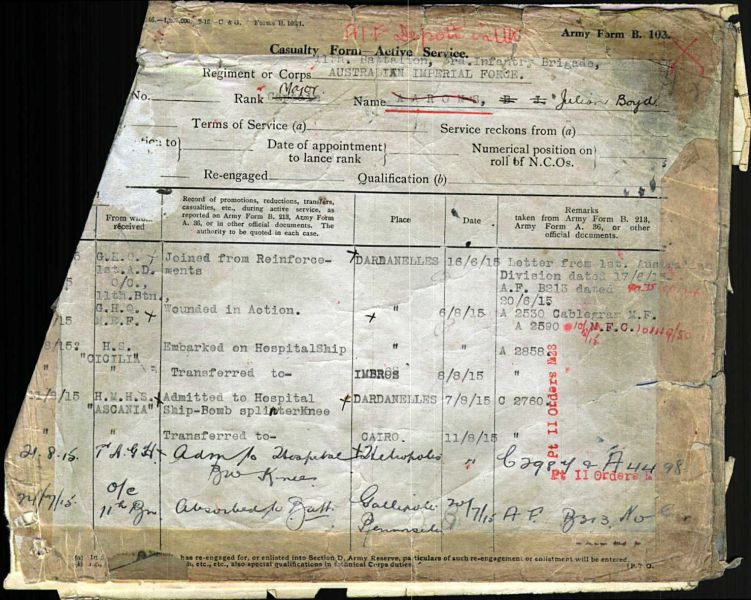 Forms B. 103.
A.I.F Depots in UK
Army Form B. 103.
Casualty Form—Active Service.
11th. Battalion, 3rd.Infantry Brigade,
Regiment or Corps AUSTRALIAN IMPERIAL FORCE.
Major
No. Rank Captain Name AARONS, Julian Boyd
Terms of Service (a) Service reckons from (a)
Date of appointment to lance rank
Numerical position on roll of N.C.Os.
Re-engaged Qualification (b)
From whom received
Record of promotions, reductions, transfers, casualties, etc., during active service, as reported on Army Form B. 213, Army Form A. 36, or in other official documents. The authority to be quoted in each case.
Place
Date
Remarks
taken from Army Form B. 213, Army Form A. 36, or other official documents.
G.H.Q. Joined from Reinforce- DARDANELLES 16/6/15 Letter from 1st. Australian
1st.A.D. ments Division dated 17/6/15
O/C., A.F. B213 dated
11th.Btn., 20/6/15
G.H.Q. Wounded in Action. " 6/8/15 A 2530 Cablegram M.F.
M.E.F. A 2590 M.F.C.
H.S. Embarked on HospitalShip " " A 2858
"CICILI"
" Transferred to- IMBROS 8/8/15 "
H.M.H.S. Admitted to Hospital DARDANELLES 7/8/15 C 2760
"ASCANIA" Ship-Bomb splinterKnee
" Transferred to- CAIRO. 11/8/15 "
21.8.15. 1st A.G.H. Adm to Hospital Heliopolis " C2984 & A4498
BW Knee
24/7/15 o/c 11th Bn Absorbed to Batt. Gallipoli Peninsula 20/7/15 A.F. B213, No
Pt II Orders M23
Pt II Orders
has re-engaged for, or enlisted into Section D, Army Reserve, particulars of such re-engagement or enlistment will be entered.
etc., etc., also special qualifications in technical Corps duties. [P.T.O.